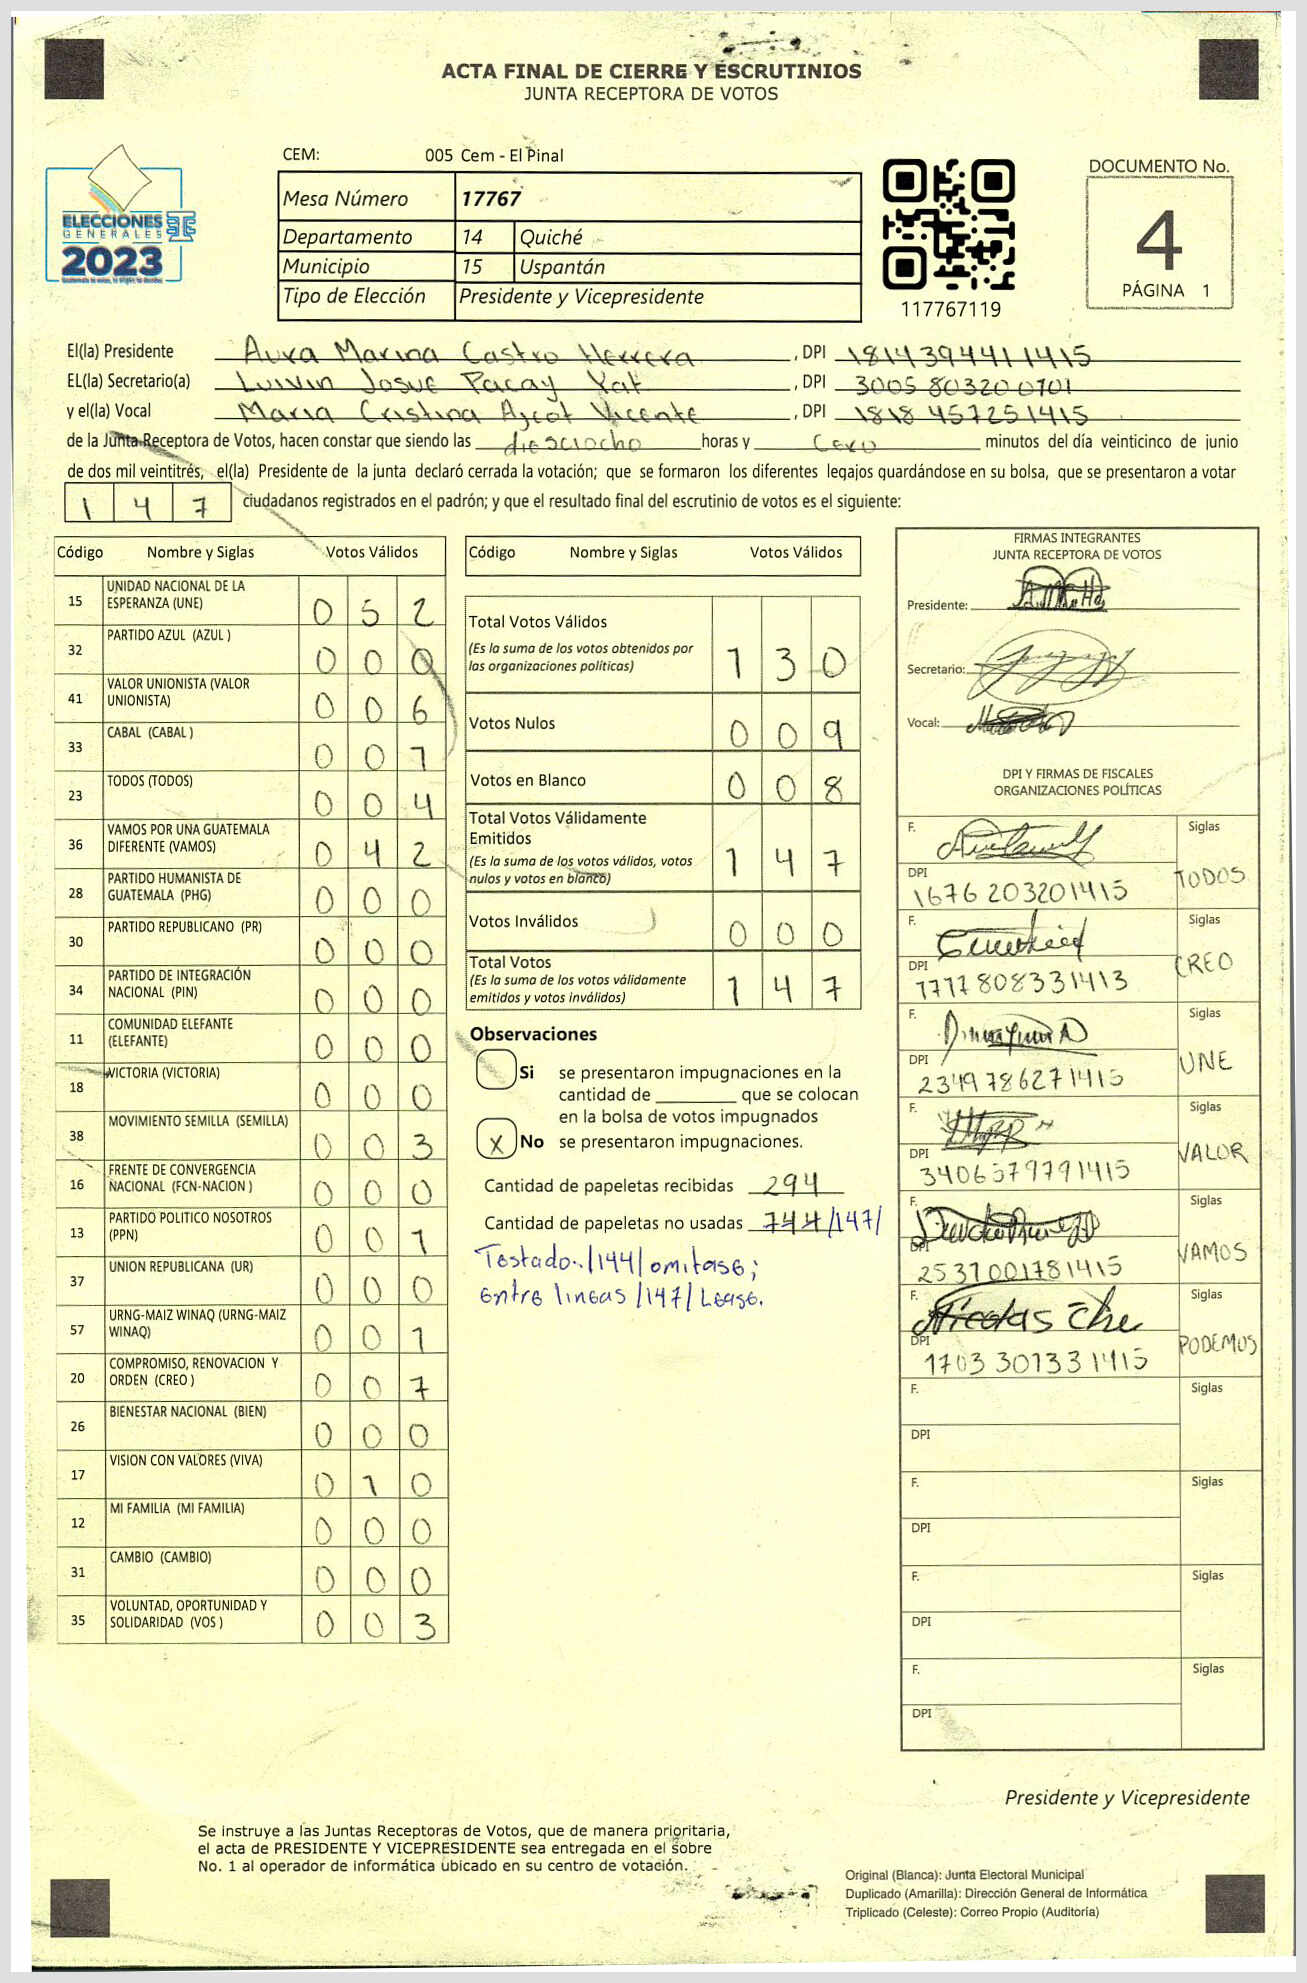 ACTA FINAL DE CIERRE Y ESCRUTINIOS
JUNTA RECEPTORA DE VOTOS
CEM: 005 Cem - El Pinal
ELECCIONES
GENERALES
2023
Mesa Número 17767
Departamento 14 Quiché
Municipio 15 Uspantán
Tipo de Elección Presidente y Vicepresidente
117767119
DOCUMENTO No.
4
PÁGINA 1
El(la) Presidente Aura Marina Castro Herrera, DPI 1814394411415
EL(la) Secretario(a) Luivin Josue Pacay Xat, DPI 3005803200701
y el(la) Vocal Maria Cristina Ajcot Vicente, DPI 1818457251415
de la Junta Receptora de Votos, hacen constar que siendo las diesciocho horas y Cero minutos del día veinticinco de junio
de dos mil veintitrés, el(la) Presidente de la junta declaró cerrada la votación; que se formaron los diferentes legajos guardándose en su bolsa, que se presentaron a votar
147 ciudadanos registrados en el padrón; y que el resultado final del escrutinio de votos es el siguiente:
Código Nombre y Siglas Votos Válidos
15 UNIDAD NACIONAL DE LA ESPERANZA (UNE) 0 5 2
32 PARTIDO AZUL (AZUL ) 0 0 0
41 VALOR UNIONISTA (VALOR UNIONISTA) 0 0 6
33 CABAL (CABAL ) 0 0 1
23 TODOS (TODOS) 0 0 4
36 VAMOS POR UNA GUATEMALA DIFERENTE (VAMOS) 0 4 2
28 PARTIDO HUMANISTA DE GUATEMALA (PHG) 0 0 0
30 PARTIDO REPUBLICANO (PR) 0 0 0
34 PARTIDO DE INTEGRACIÓN NACIONAL (PIN) 0 0 0
11 COMUNIDAD ELEFANTE (ELEFANTE) 0 0 0
18 VICTORIA (VICTORIA) 0 0 0
38 MOVIMIENTO SEMILLA (SEMILLA) 0 0 3
16 FRENTE DE CONVERGENCIA NACIONAL (FCN-NACION ) 0 0 0
13 PARTIDO POLITICO NOSOTROS (PPN) 0 0 1
37 UNION REPUBLICANA (UR) 0 0 0
57 URNG-MAIZ WINAQ (URNG-MAIZ WINAQ) 0 0 1
20 COMPROMISO, RENOVACION Y ORDEN (CREO ) 0 0 7
26 BIENESTAR NACIONAL (BIEN) 0 0 0
17 VISION CON VALORES (VIVA) 0 1 0
12 MI FAMILIA (MI FAMILIA) 0 0 0
31 CAMBIO (CAMBIO) 0 0 0
35 VOLUNTAD, OPORTUNIDAD Y SOLIDARIDAD (VOS ) 0 0 3
Código Nombre y Siglas Votos Válidos
Total Votos Válidos 1 3 0
(Es la suma de los votos obtenidos por las organizaciones políticas)
Votos Nulos 0 0 9
Votos en Blanco 0 0 8
Total Votos Válidamente Emitidos 1 4 7
(Es la suma de los votos válidos, votos nulos y votos en blanco)
Votos Inválidos 0 0 0
Total Votos 1 4 7
(Es la suma de los votos válidamente emitidos y votos inválidos)
Observaciones
Si se presentaron impugnaciones en la
cantidad de ________ que se colocan
en la bolsa de votos impugnados
X No se presentaron impugnaciones.
Cantidad de papeletas recibidas 294
Cantidad de papeletas no usadas 144 /147/
Testado:/144/omitase;
entre lineas /147/ Lease.
FIRMAS INTEGRANTES
JUNTA RECEPTORA DE VOTOS
Presidente:
Secretario:
Vocal:
DPI Y FIRMAS DE FISCALES
ORGANIZACIONES POLÍTICAS
F. Siglas
DPI 1676203201415 TODOS
F. Siglas
DPI 1717808331413 CREO
F. Siglas
DPI 2349786271415 UNE
F. Siglas
DPI 3406579791415 VALOR
F. Siglas
DPI 2537001781415 VAMOS
F. Nicolas Siglas
DPI 1703301331415 PODEMOS
F. Siglas
DPI
F. Siglas
DPI
F. Siglas
DPI
F. Siglas
DPI
Presidente y Vicepresidente
Se instruye a las Juntas Receptoras de Votos, que de manera prioritaria,
el acta de PRESIDENTE Y VICEPRESIDENTE sea entregada en el sobre
No. 1 al operador de informática ubicado en su centro de votación.
Original (Blanca): Junta Electoral Municipal
Duplicado (Amarilla): Dirección General de Informática
Triplicado (Celeste): Correo Propio (Auditoría)